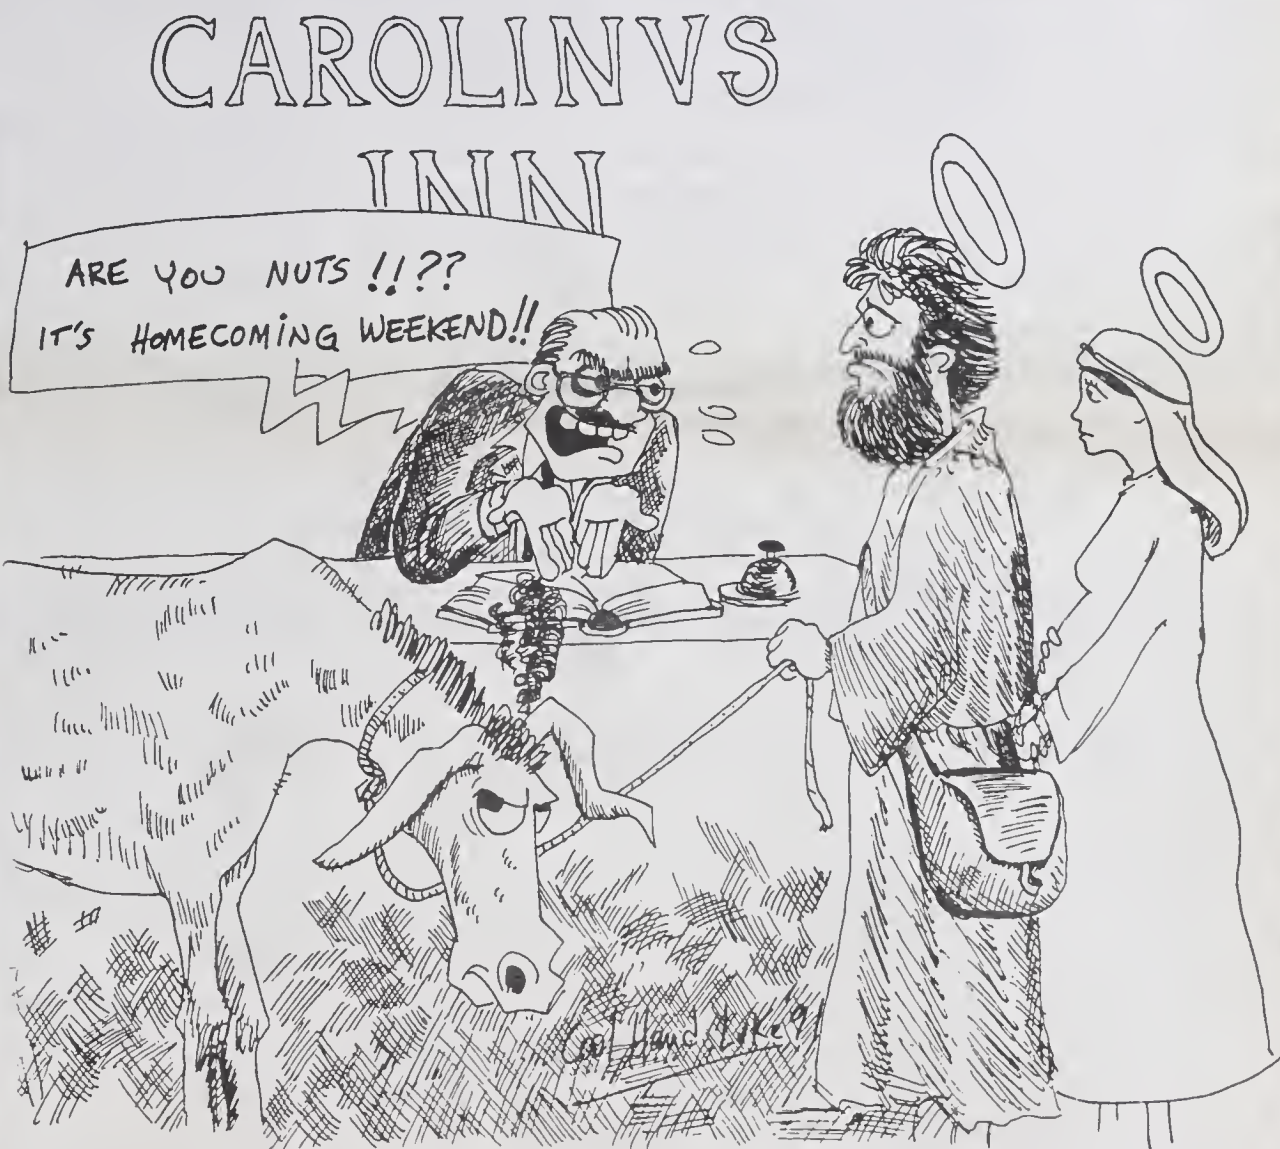 CAROLINVS
INN
ARE YOU NUTS !!??
IT'S HOMECOMING WEEKEND!!
Cool Hand Luke